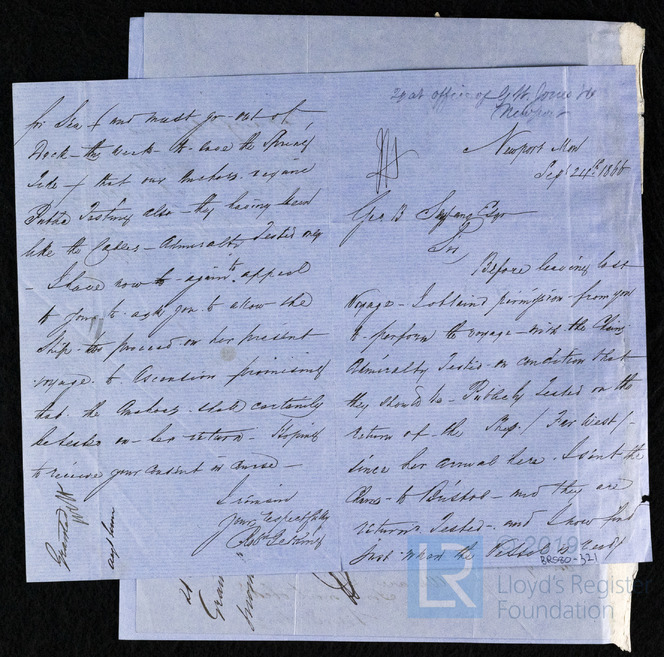 at office of
Newport
Newport Mon
Sept 24th 1866
Geo B Esqr
Sir
Before leaving last
Voyage I obtained permission from you
to perform the voyage with the Chains
Admiralty Tested on condition that
they should be Publicly Tested on the
return of the Ship / Far West /
since her arrival here I sent the
Chains to Bristol and they are
returned Tested and I now find
just when the Vessel is ready
for Sea & and must go out of
Dock this week to save the Spring
Tide & that our Anchors require
Public Testing also they having been
like the Cables Admiralty Tested only
I have now to again appeal
to you to ask you to allow the
Ship to proceed on her present
voyage to Ascension promising
that the Anchors shall certainly
be tested on her return Hoping
to receive your consent in course
I remain
your respectfully
Granted
BRS30-321
© 2019
LR
Lloyd's Register
Foundation